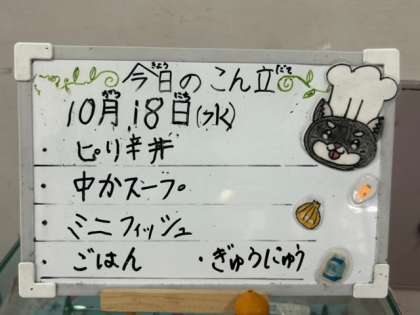 今日のこん立
10月18日(水)
・ピリ辛丼
・中かスープ
・ミニフィッシュ
・ごはん ・ぎゅうにゅう